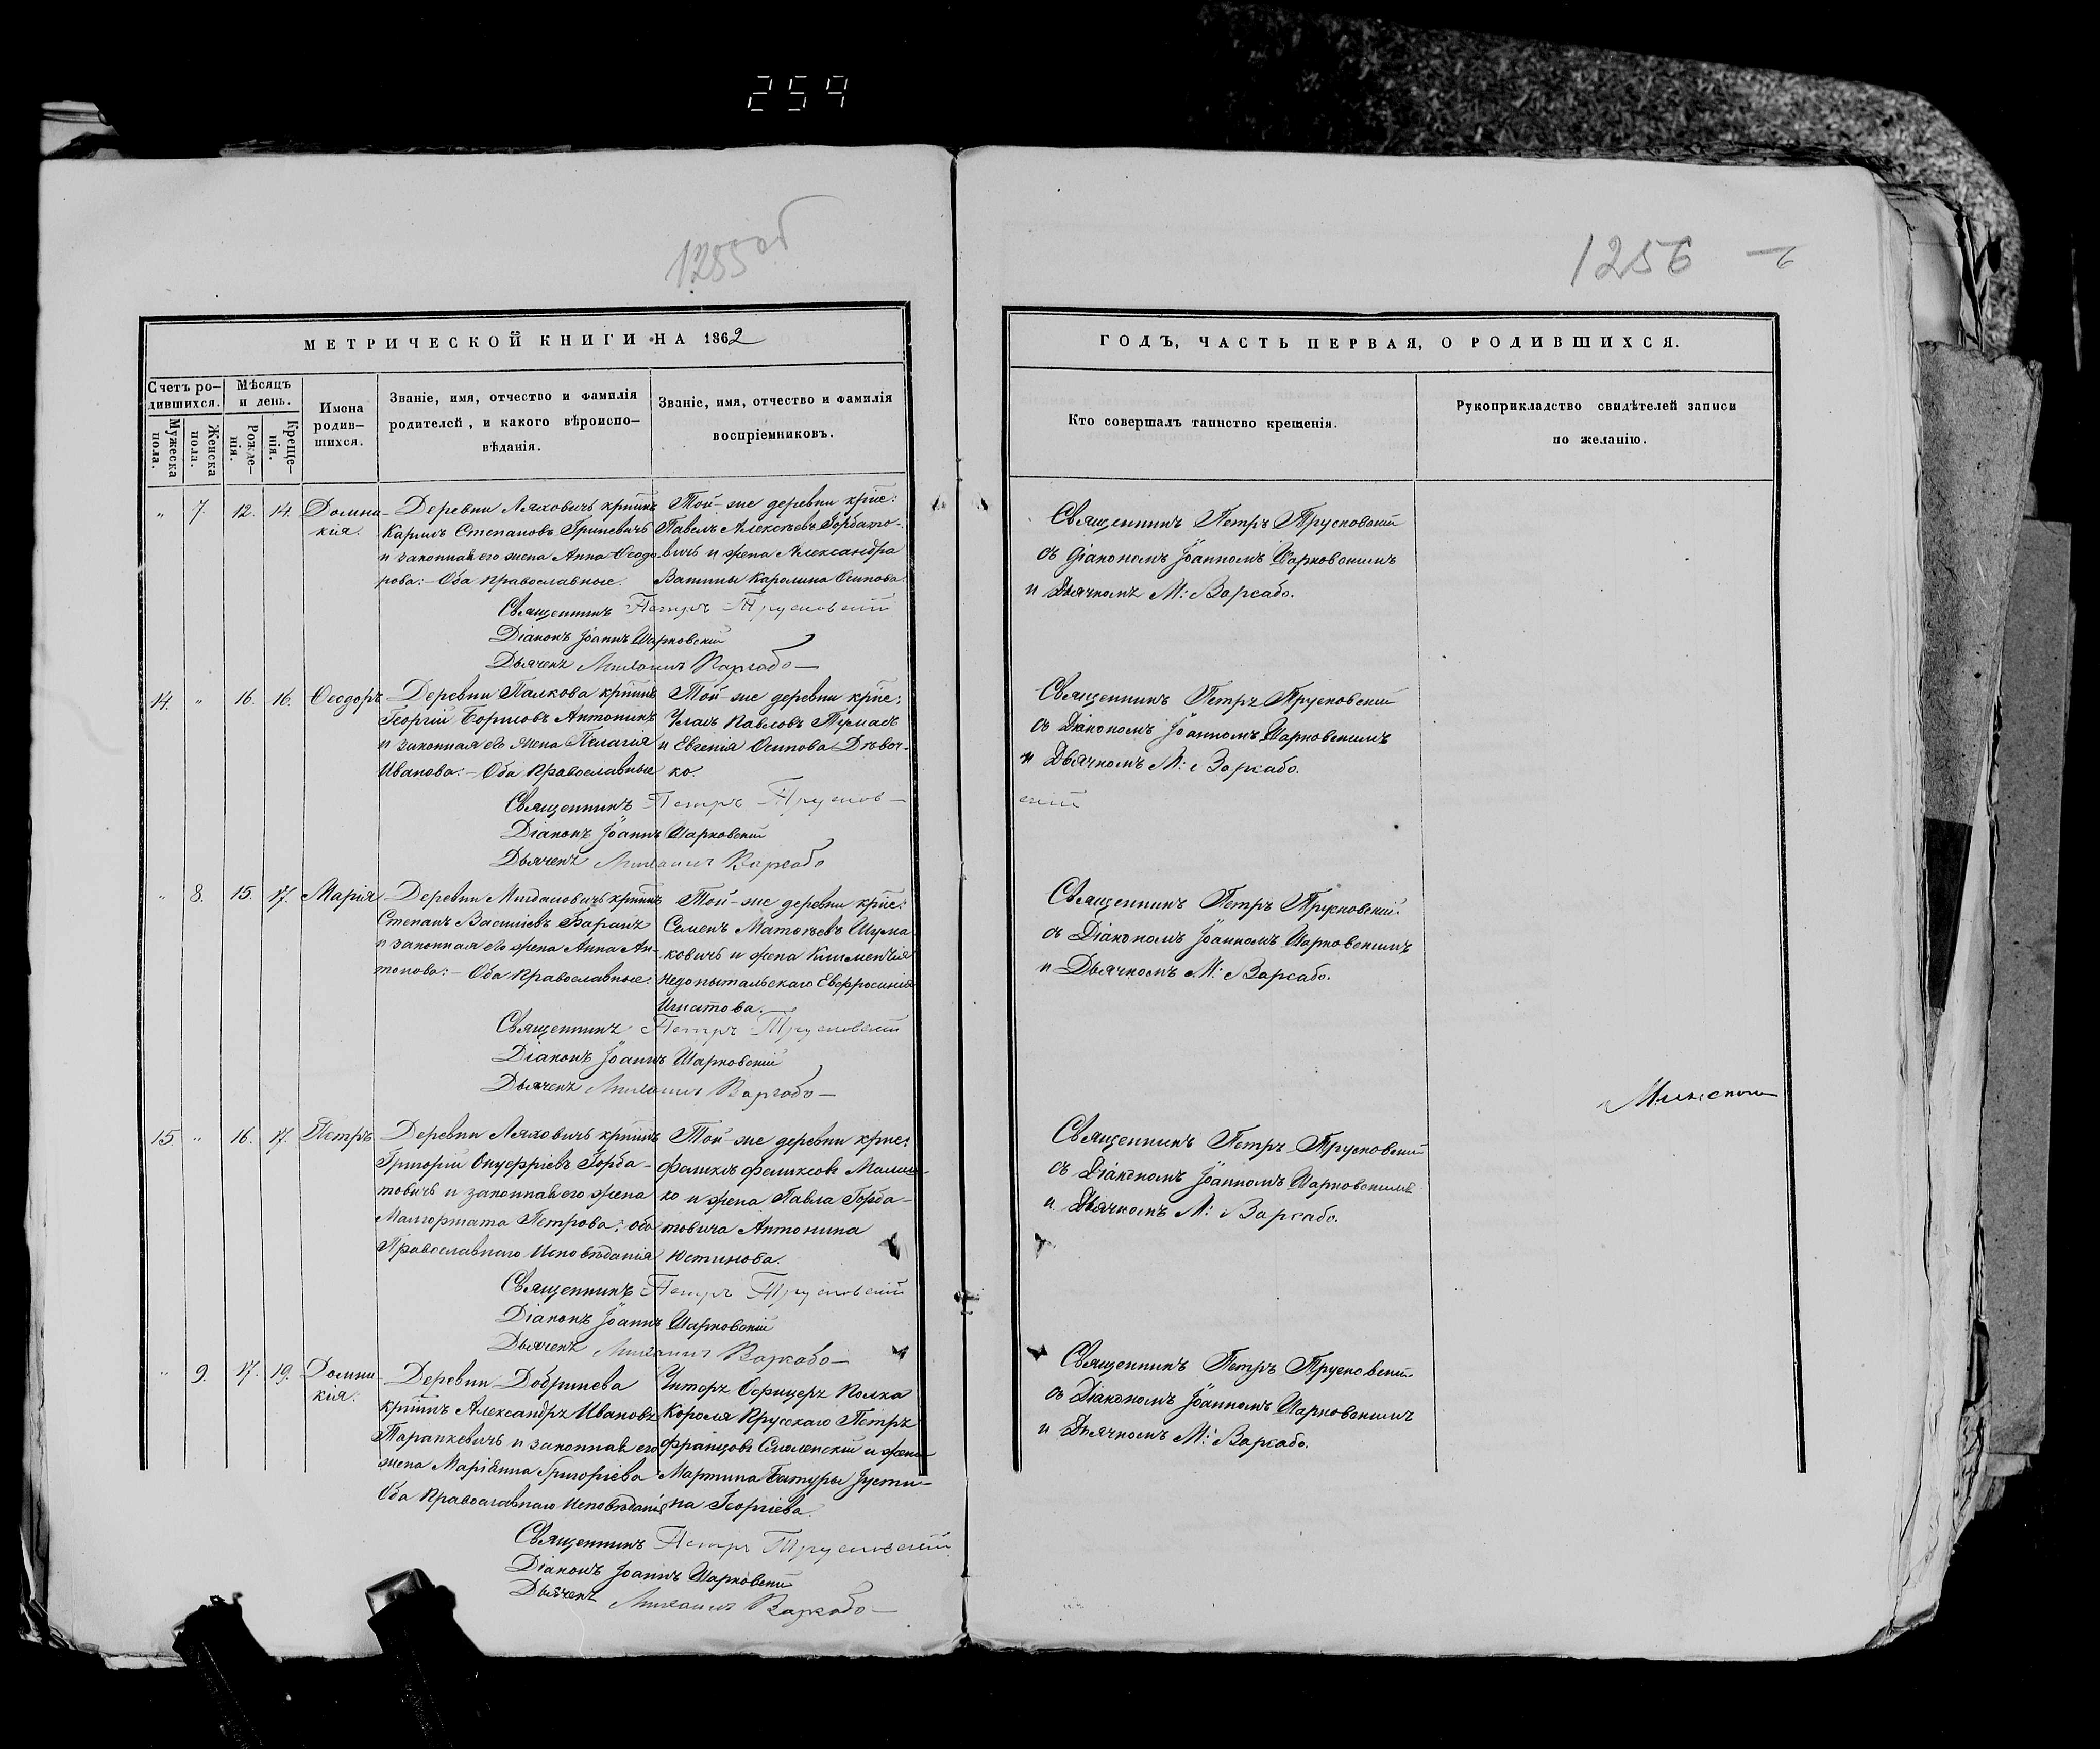 259
1255об
МЕТРИЧЕСКОЙ КНИГИ НА 1862
Счетъ ро-
дившихся.
Мѣсяцъ
и день.
Мужеска
пола.
Женска
пола.
Рожде-
нія.
Креще-
нія.
Имена
родив-
шихся.
Званіе, имя, отчество и фамилія
родителей, и какого вѣроиспо-
вѣданія.
Званіе, имя, отчество и фамилія
воспріемниковъ.
" 7. 12. 14. Домни- Деревни Ляховичъ Той-же деревни
кія. Степановъ Гриневичъ Павелъ Алексѣевъ Горбато-
и законная его жена Анна Ѳеодо- вичъ и жена Александра
рова: - Оба Православные. Каролина Осипова.
Священникъ Петръ Трусковскій
Діаконъ Іоаннъ Шарковскій
Дьячекъ Михаилъ Варкабо
14. " 16. 16. Ѳеодоръ Деревни Палкова Той-же деревни
Георгій Борисовъ Антоникъ Павловъ
и законная его жена Пелагія и Евгенія Осипова Дѣвоч-
Иванова: - Оба Православные ко.
Священникъ Петръ Трусков-
Діаконъ Іоаннъ Шарковскій
Дьячекъ Михаилъ Варкабо
" 8. 15. 17. Марія Деревни Той-же деревни
Степанъ Василіевъ Баранъ Семенъ Матѳѣевъ Шума
и законная его жена Анна Ан- ковичъ и жена Климентія
тонова: - Оба Православные. Евфросинія
Игнатова.
Священникъ Петръ Трусковскій
Діаконъ Іоаннъ Шарковскій
Дьячекъ Михаилъ Варкабо
15. " 16. 17. Петръ Деревни Ляховичъ Той-же деревни
Григорій Онуфріевъ Горба- Феликсовъ
товичъ и законная его жена ко и жена Павла Горба-
Малгоржата Петрова; оба товича Антонина
Православнаго Исповѣданія Юстинова.
Священникъ Петръ Трусковскій
Діаконъ Іоаннъ Шарковскій
Дьячекъ Михаилъ Варкабо
" 9. 17. 19. Домни- Деревни Добринева Унтеръ Офицеръ Полка
кія. Александръ Ивановъ Короля Прусскаго Петръ
Таранкевичъ и законная его Францовъ Смоленскій и жена
жена Маріанна Григоріева Мартина Батуры Густи-
Оба Православнаго Исповѣданія на Георгіева.
Священникъ Петръ Трусковскій
Діаконъ Іоаннъ Шарковскій
Дьячекъ Михаилъ Варкабо
1256
ГОДЪ, ЧАСТЬ ПЕРВАЯ, О РОДИВШИХСЯ.
Кто совершалъ таинство крещенія.
Рукоприкладство свидѣтелей записи
по желанію.
Священникъ Петръ Трусковскій
съ Діакономъ Іоанномъ Шарковскимъ
и Дьячкомъ М: Варкабо.
Священникъ Петръ Трусковскій
съ Діакономъ Іоанномъ Шарковскимъ
и Дьячкомъ М: Варкабо.
скій
Священникъ Петръ Трусковскій
съ Діакономъ Іоанномъ Шарковскимъ
и Дьячкомъ М: Варкабо.
Священникъ Петръ Трусковскій
съ Діакономъ Іоанномъ Шарковскимъ
и Дьячкомъ М: Варкабо.
Священникъ Петръ Трусковскій
съ Діакономъ Іоанномъ Шарковскимъ
и Дьячкомъ М: Варкабо.